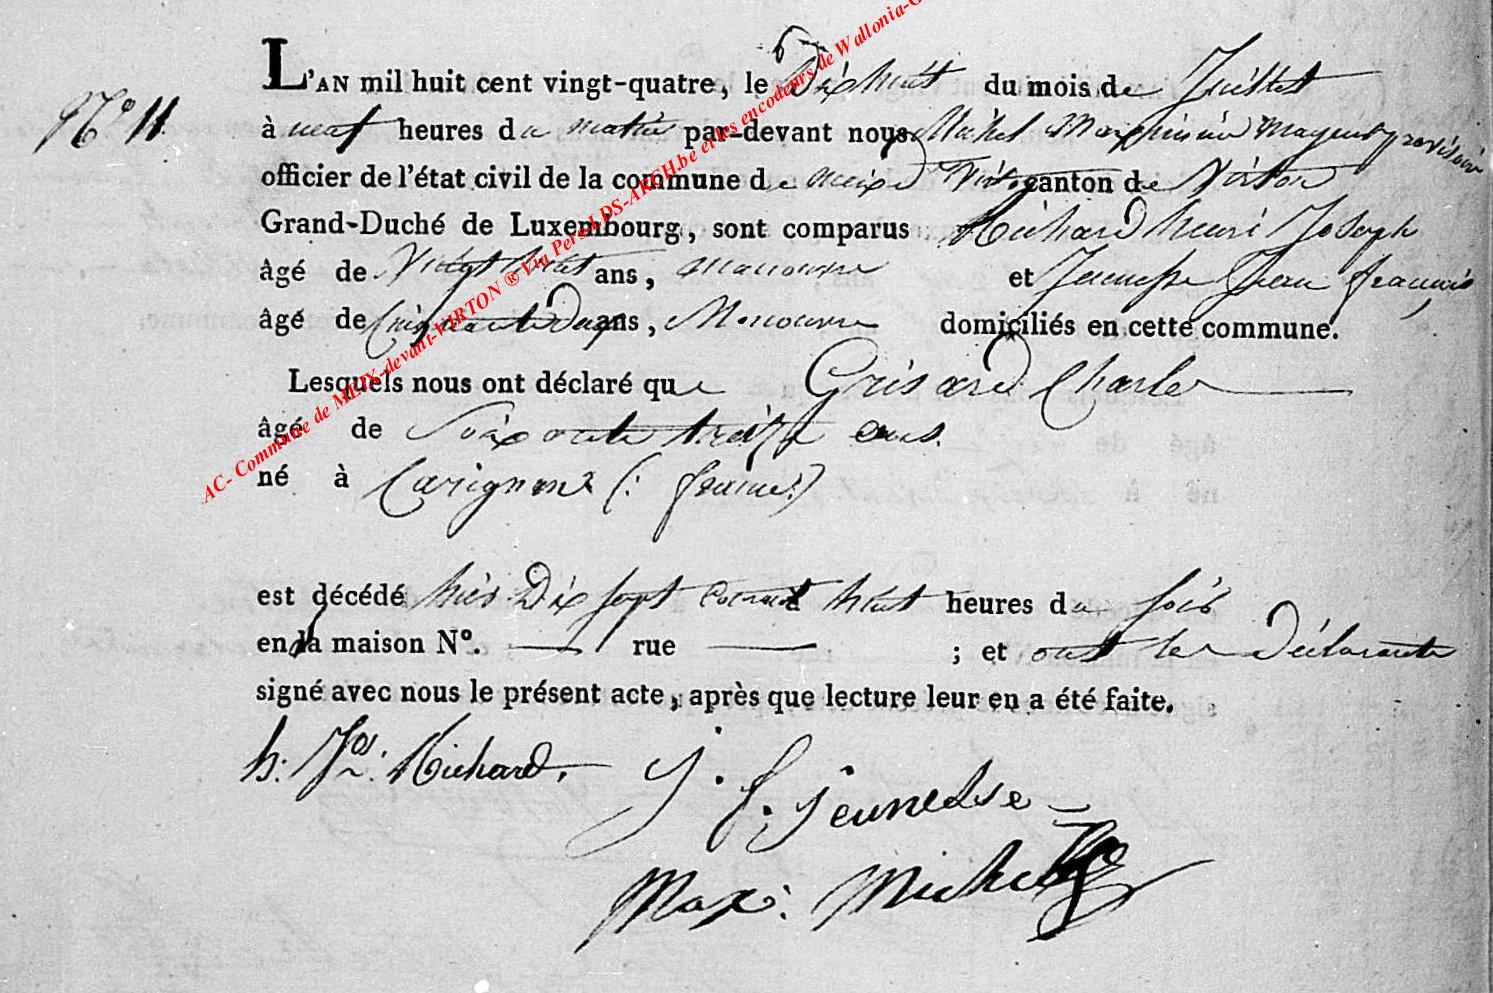 N.º 11.
L'AN mil huit cent vingt-quatre, le Dix huit du mois de Juillet
à neuf heures du matin par-devant nous Michel Maximilien mayeur provisoire
officier de l'état civil de la commune de Meix dt Virton canton de Virton
Grand-Duché de Luxembourg, sont comparus Richard henri Joseph
âgé de Vingt huit ans, Manouvre et Jeunesse Jean francois
âgé de Cinquante Deux ans, Manouvre domiciliés en cette commune.
Lesquels nous ont déclaré que Grisard Charles
âgé de Soixante treize ans
né à Carignan (: france :)
est décédé hier Dix sept courant huit heures du soir
en la maison Nº. — rue — ; et ont les Déclarants
signé avec nous le présent acte, après que lecture leur en a été faite.
h: Jos: Richard.
J. f. jeunesse
Max: Michel
AC- Commune de MEIX-devant-VIRTON ® Via Pers-LDS-ARCH.be et les encodeurs de Wallonia-G